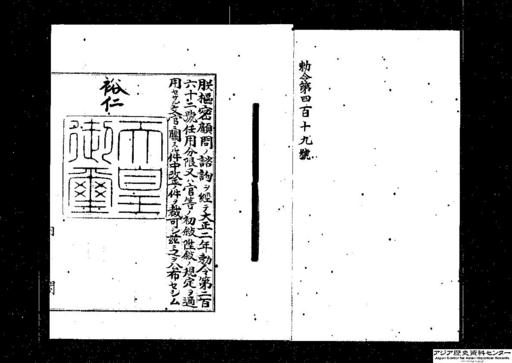 勅令第四百十九號
朕樞密顧問ノ諮詢ヲ經テ大正二年勅令第二百
六十二號任用分限又ハ官等ノ初敍陞敍ノ規定ヲ適
用セサル文官ニ關スル件中改正ノ件ヲ裁可シ茲ニ之ヲ公布セシム
裕仁
天皇
御璽
アジア歴史資料センター
Japan Center for Asian Historical Records